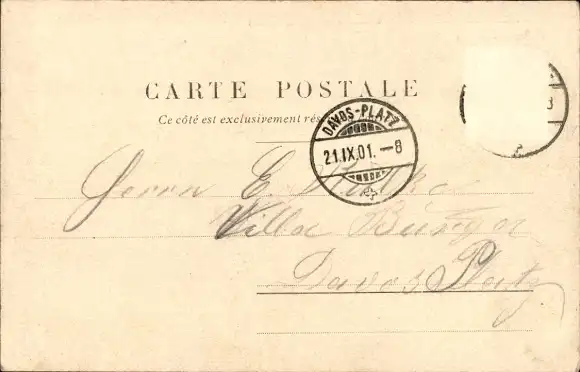 CARTE POSTALE
Ce côté est exclusivement rés
DAVOS-PLATZ
21.IX.01.-8
8
Herrn E.
Villa Burger
Davos Platz